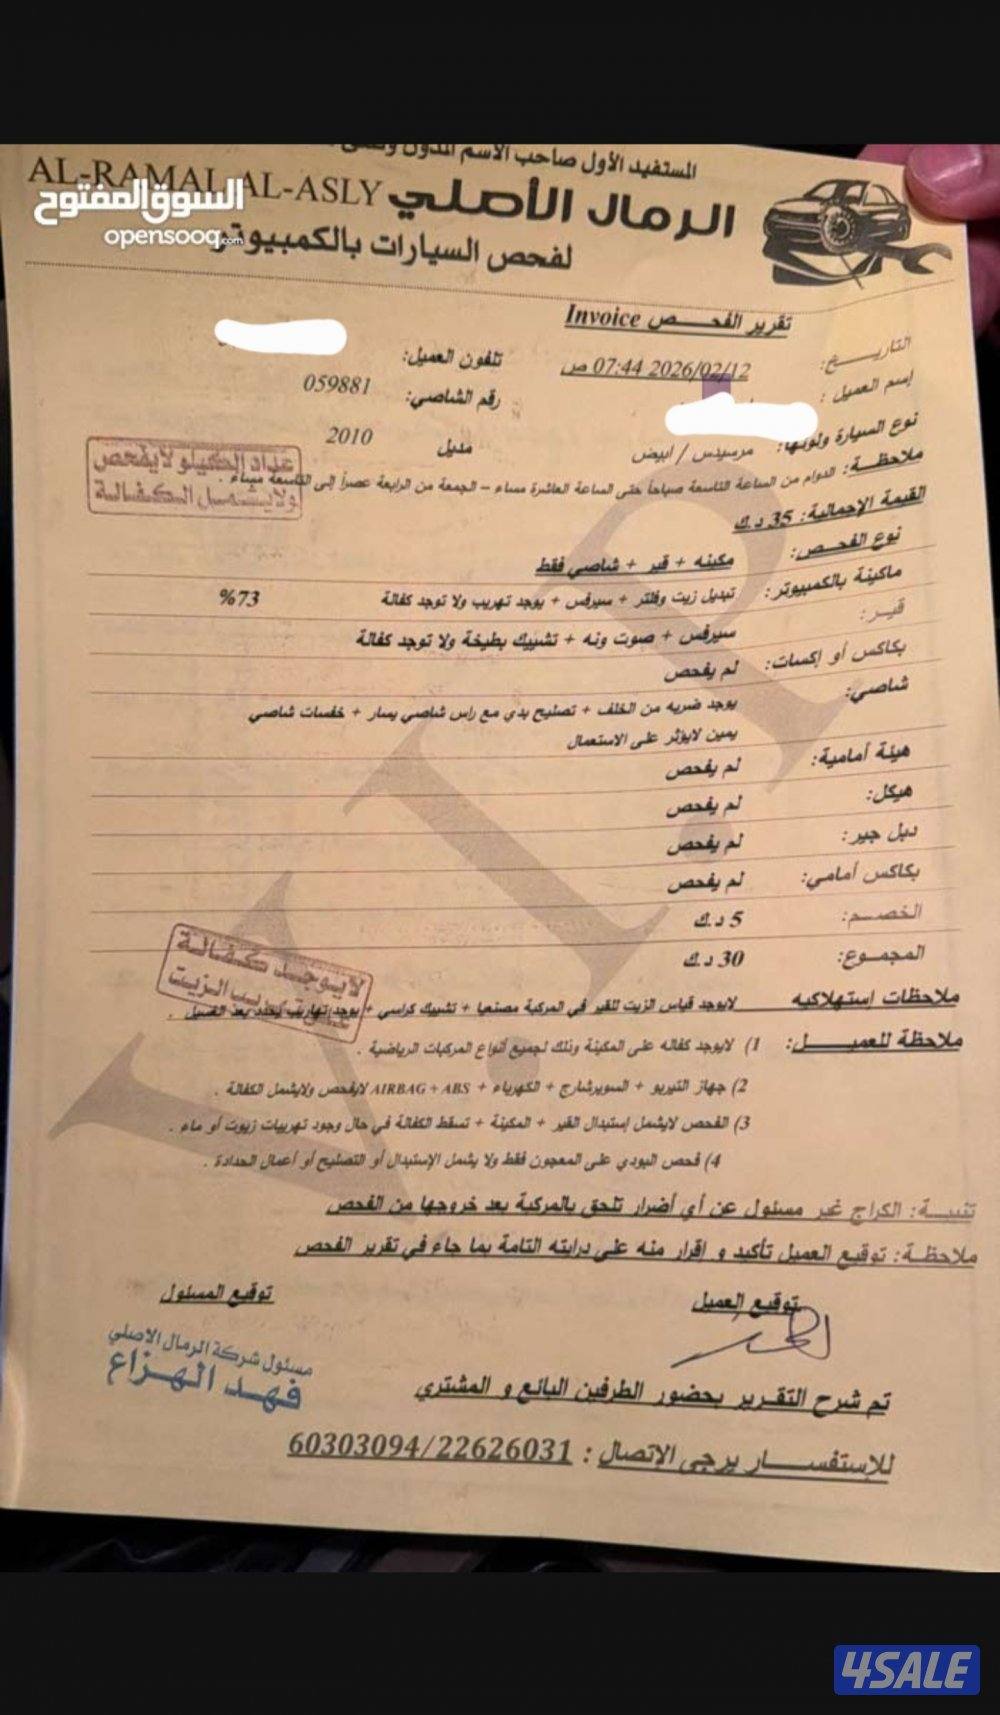 المستفيد الأول صاحب الاسم المدون
AL-RAMAL AL-ASLY الرمال الأصلي
السوق المفتوح
opensooq.com
لفحص السيارات بالكمبيوتر
تقرير الفحـــص Invoice
التاريـــخ: 2026/02/12 07:44 ص
تلفون العميل:
إسم العميل :
رقم الشاصي: 059881
نوع السيارة ولونها: مرسيدس / أبيض
مديل 2010
عداد الكيلو لايفحص
ولايشمل الكفالة
ملاحظة: الدوام من الساعة التاسعة صباحاً حتى الساعة العاشرة مساء – الجمعة من الرابعة عصراً إلى التاسعة مساء .
القيمة الإجمالية: 35 د.ك
نوع الفحص: مكينه + قير + شاصي فقط
ماكينة بالكمبيوتر: تبديل زيت وفلتر + سيرفس + يوجد تهريب ولا توجد كفالة 73%
قيـر: سيرفس + صوت ونه + تشييك بطيخة ولا توجد كفالة
بكاكس أو إكسات: لم يفحص
شاصي: يوجد ضربه من الخلف + تصليح بدي مع راس شاصي يسار + خفسات شاصي
يمين لايؤثر على الاستعمال
هيئة أمامية: لم يفحص
هيكل: لم يفحص
دبل جير: لم يفحص
بكاكس أمامي: لم يفحص
الخصـــم: 5 د.ك
المجمـوع: 30 د.ك
لايوجد كفالة
تهريب الزيت
ملاحظات إستهلاكيه لايوجد قياس الزيت للقير في المركبة مصنعيا + تشييك كراسي + يوجد تهاريب يحدد بعد الغسيل .
ملاحظة للعميـــل: 1) لايوجد كفاله على المكينة وذلك لجميع أنواع المركبات الرياضية .
2) جهاز التيربو + السوبرشارج + الكهرباء + AIRBAG + ABS لايفحص ولايشمل الكفالة .
3) الفحص لايشمل إستبدال القير + المكينة + تسقط الكفالة في حال وجود تهريبات زيوت أو ماء .
4) فحص البودي على المعجون فقط ولا يشمل الإستبدال أو التصليح أو أعمال الحدادة .
تنبيـــه: الكراج غير مسئول عن أي أضرار تلحق بالمركبة بعد خروجها من الفحص
ملاحظة: توقيع العميل تأكيد و إقرار منه على درايته التامة بما جاء في تقرير الفحص
توقيع العميل
توقيع المسئول
مسئول شركة الرمال الاصلي
فهد الهزاع
تم شرح التقرير بحضور الطرفين البائع و المشتري
للإستفســـار يرجى الإتصال : 60303094/22626031
V.I.P
4SALE